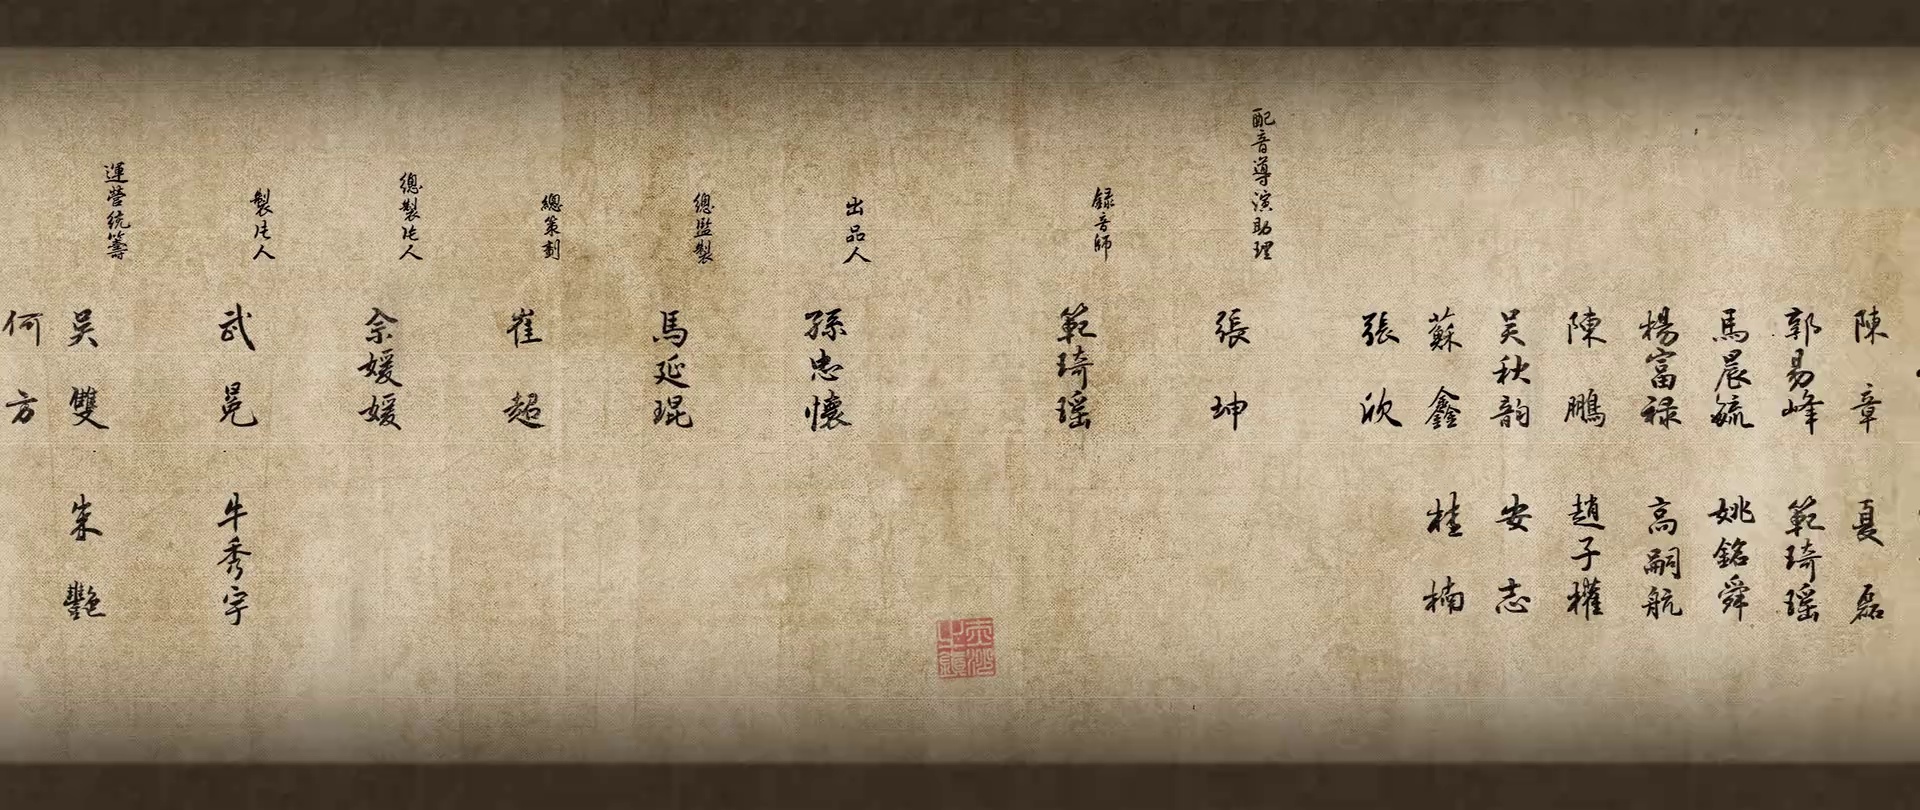 陳章
夏磊
郭易峰
範琦瑶
馬晨毓
姚銘舜
楊富禄
高嗣航
陳鵬
趙子權
吴秋韵
安志
蘇鑫
桂楠
張欣
配音導演助理
張坤
録音師
範琦瑶
出品人
孫忠懷
總監製
馬延琨
總策劃
崔超
總製片人
佘媛媛
製片人
武冕
牛秀字
運營統籌
吴雙
朱艷
何方